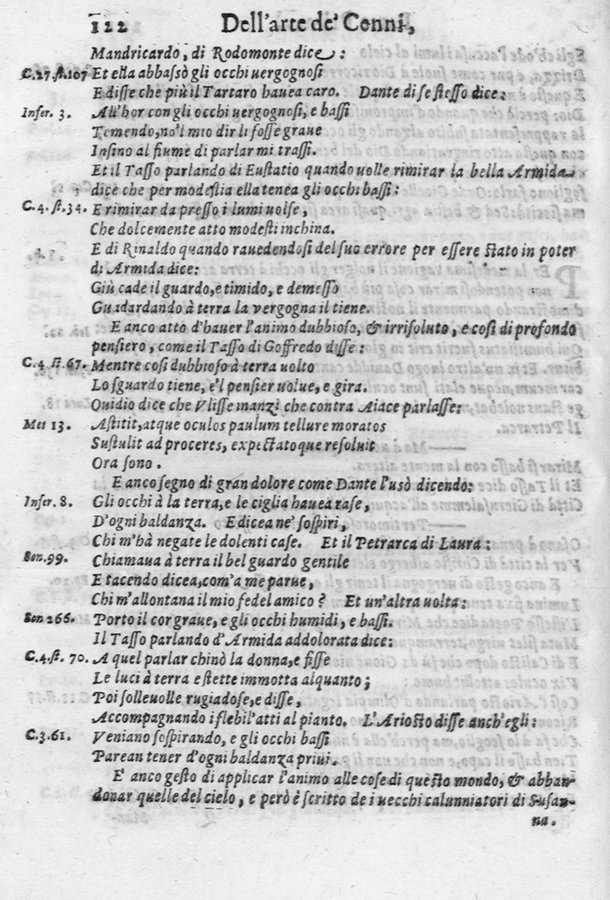 122 Dell'arte de' Cenni,
Mandricardo, di Rodomonte dice:
C.27.st.107 Et ella abbassò gli occhi uergognosi
E disse che più il Tartaro hauea caro. Dante di se stesso dice:
Infer. 3. All'hor con gli occhi uergognosi, e bassi
Temendo, no'l mio dir li fosse graue
Insino al fiume di parlar mi trassi.
Et il Tasso parlando di Eustatio quando uolle rimirar la bella Armida
dice che per modestia ella tenea gli occhi bassi:
C.4. st.34. E rimirar da presso i lumi uolse,
Che dolcemente atto modesti inchina.
E di Rinaldo quando rauedendosi del suo errore per essere stato in poter
di Armida dice:
Giù cade il guardo, e timido, e demesso
Guadardando à terra la vergogna il tiene.
E anco atto d'hauer l'animo dubbioso, & irrisoluto, e cosi di profondo
pensiero, come il Tasso di Goffredo disse:
C.4 st.67. Mentre cosi dubbioso à terra uolto
Lo sguardo tiene, e'l pensier uolue, e gira.
Ouidio dice che Vlisse manzi che contra Aiace parlasse:
Met 13. Astitit, atque oculos paulum tellure moratos
Sustulit ad proceres, expectatoque resoluit
Ora sono.
E anco segno di gran dolore come Dante l'usò dicendo:
Infer. 8. Gli occhi à la terra, e le ciglia hauea rase,
D'ogni baldanza. E dicea ne' sospiri,
Chi m'hà negate le dolenti case. Et il Petrarca di Laura:
Son.99. Chiamaua à terra il bel guardo gentile
E tacendo dicea, com'a me parue,
Chi m'allontana il mio fedel amico? Et un'altra uolta:
Son 266. Porto il cor graue, e gli occhi humidi, e bassi.
Il Tasso parlando d'Armida addolorata dice:
C.4.st. 70. A quel parlar chinò la donna, e fisse
Le luci à terra e stette immotta alquanto;
Poi solleuolle rugiadose, e disse,
Accompagnando i flebil'atti al pianto. L'Ariosto disse anch'egli:
C.3.61. Veniano sospirando, e gli occhi bassi
Parean tener d'ogni baldanza priui.
E' anco gesto di applicar l'animo alle cose di questo mondo, & abban-
donar quelle del cielo, e però è scritto de i uecchi calunniatori di Susan-
na.